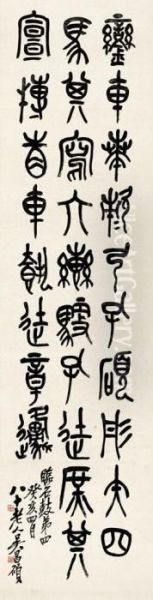 鑾車𠦪敕弓孔碩彤矢四
馬其寫六轡驁孔徒庶其
宣搏眚車徒章邍
臨石鼓第四
癸亥四月
八十老人吳昌碩